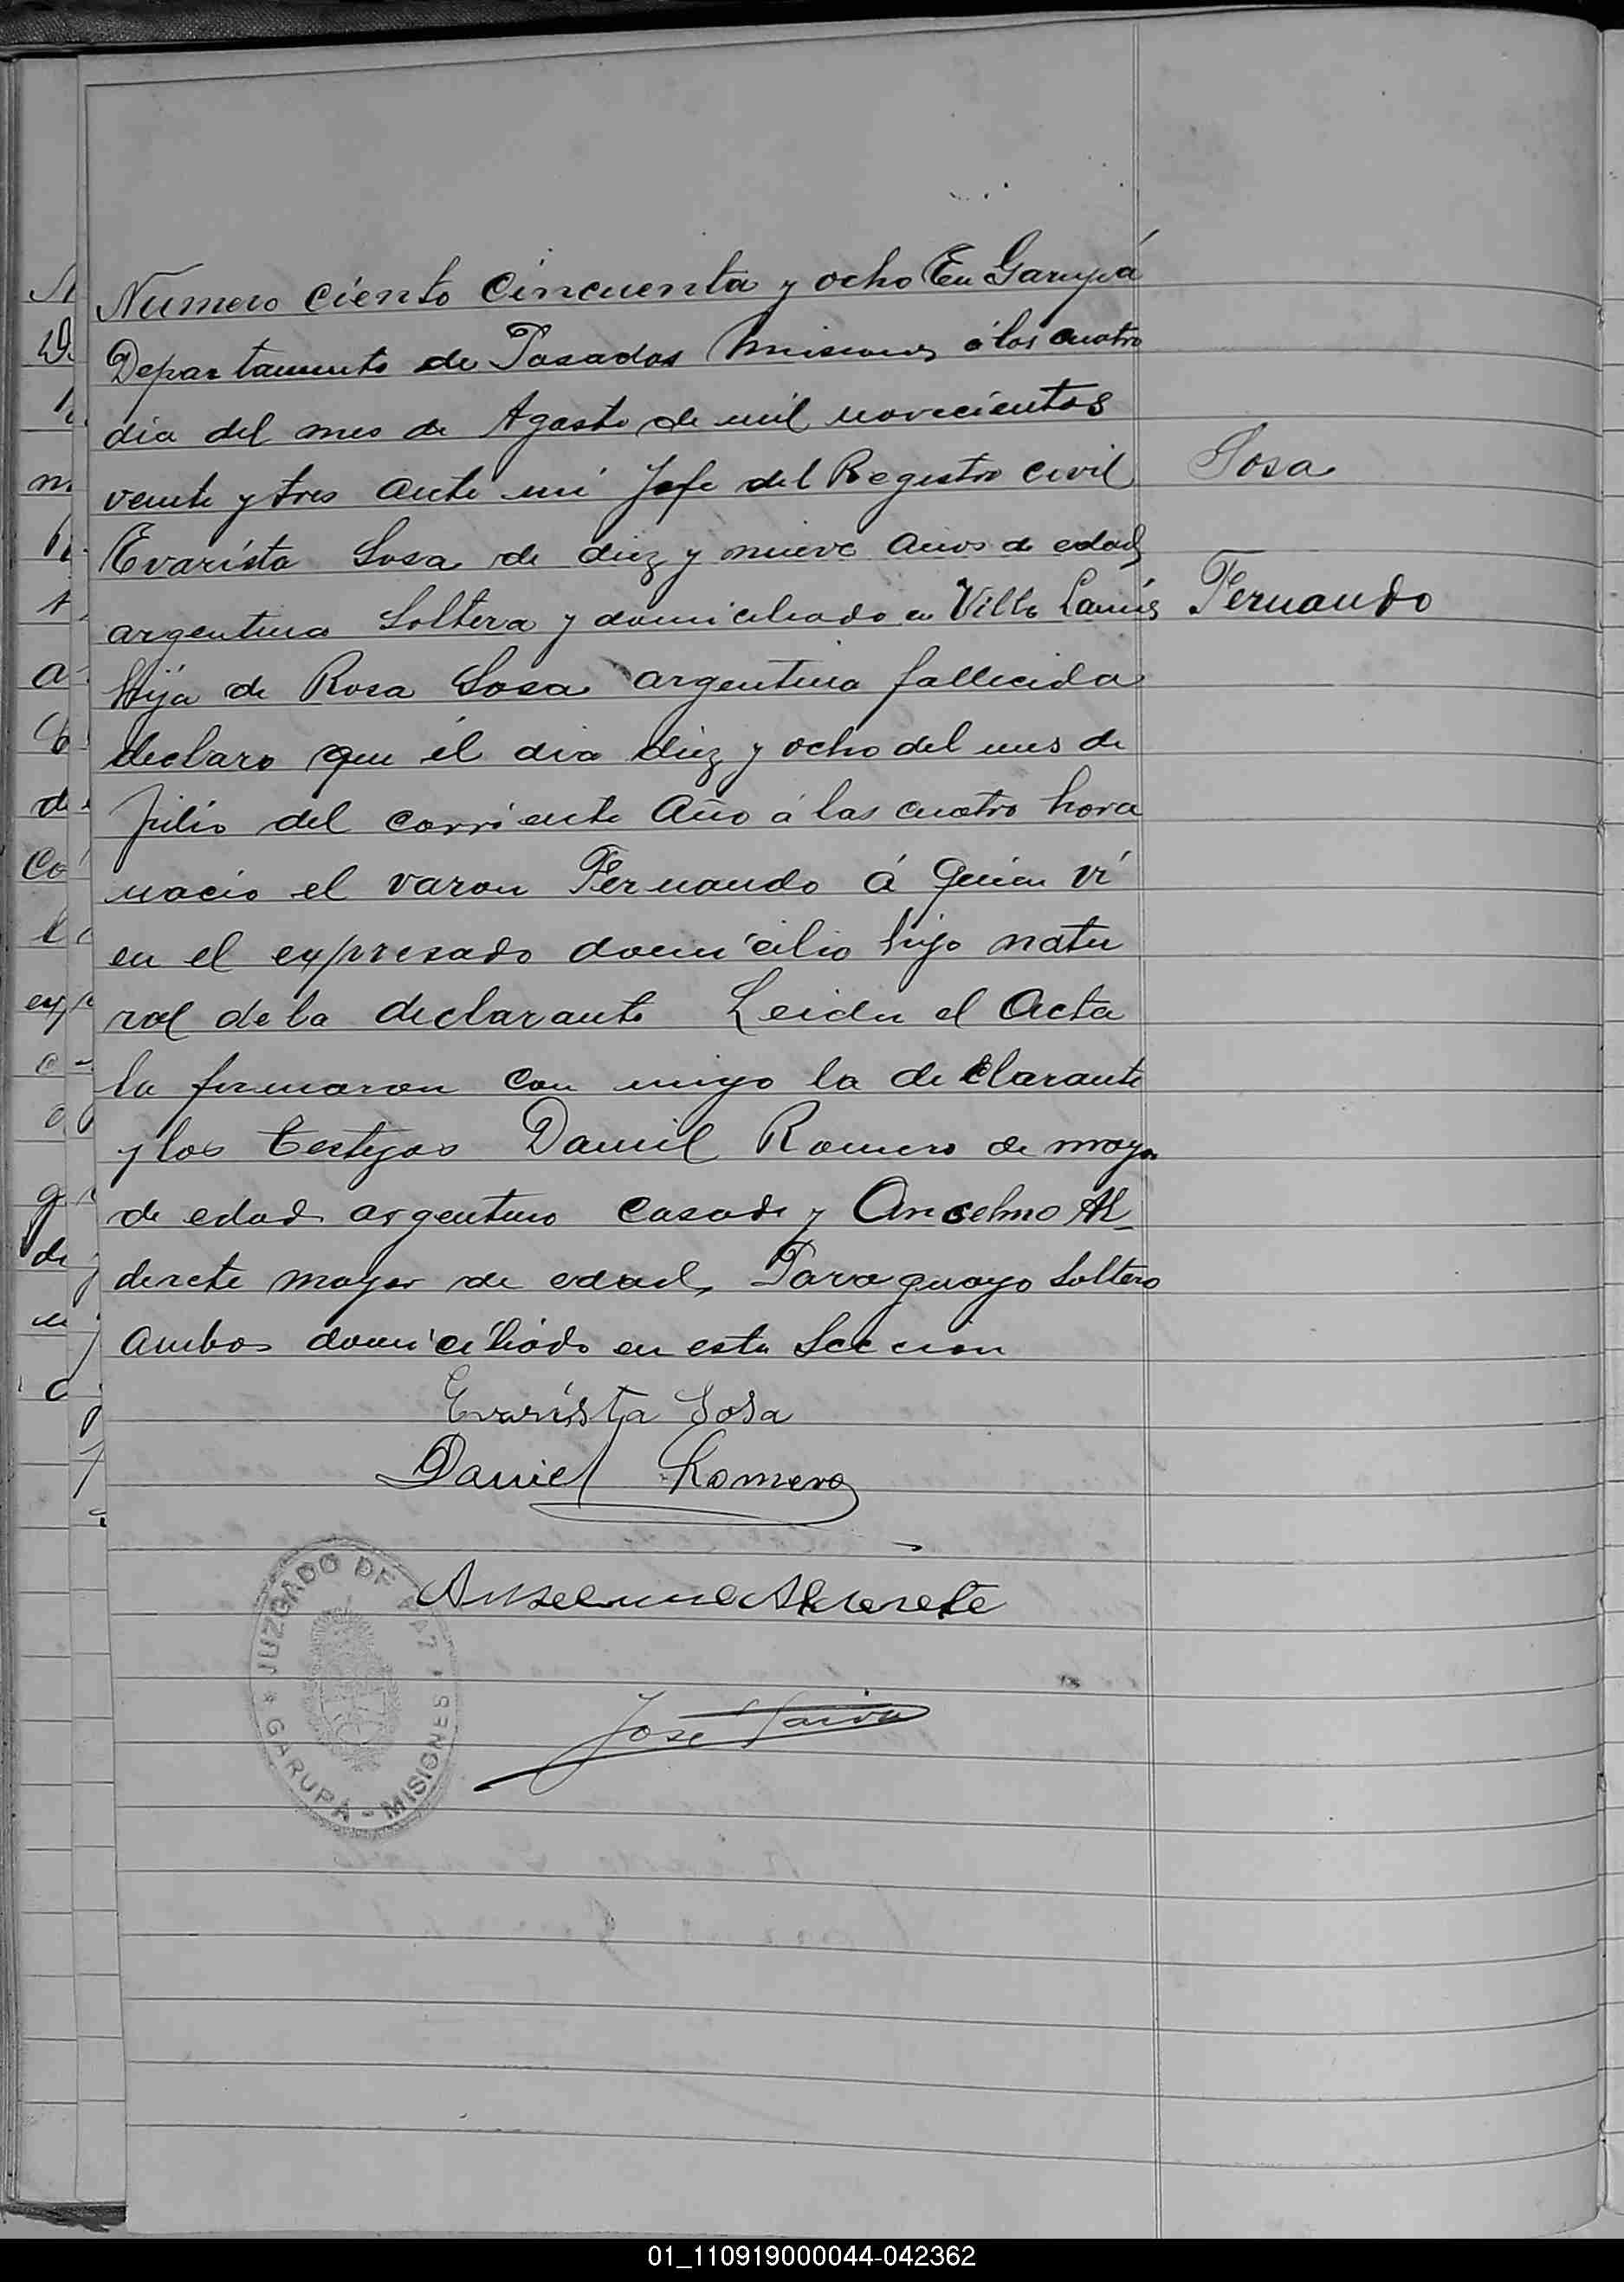 Numero ciento cincuenta y ocho En Garupá
Departamento de Posadas Misiones á los cuatro
dia del mes de Agosto de mil novecientos
veinte y tres ante mi Jefe del Registro civil
Evarista Sosa de diez y nueve años de edad
argentina Soltera y domiciliado en Villa Lanús
hija de Rosa Sosa argentina fallecida
declaro que él dia diez y ocho del mes de
Julio del corriente año á las cuatro hora
nacio el varon Fernando á quien vi
en el expresado domicilio hijo natu
ral de la declarante Leida el Acta
la firmaron con migo la declarante
y los testigos Daniel Romero de mayor
de edad argentino casado y Ancelmo Al_
derete mayor de edad, Paraguayo Soltero
ambos domiciliado en esta Seccion
Evarista Sosa
Daniel Romero
Anselmo Alderete
Jose
Sosa
Fernando
JUZGADO DE PAZ
GARUPÁ - MISIONES
01_110919000044-042362